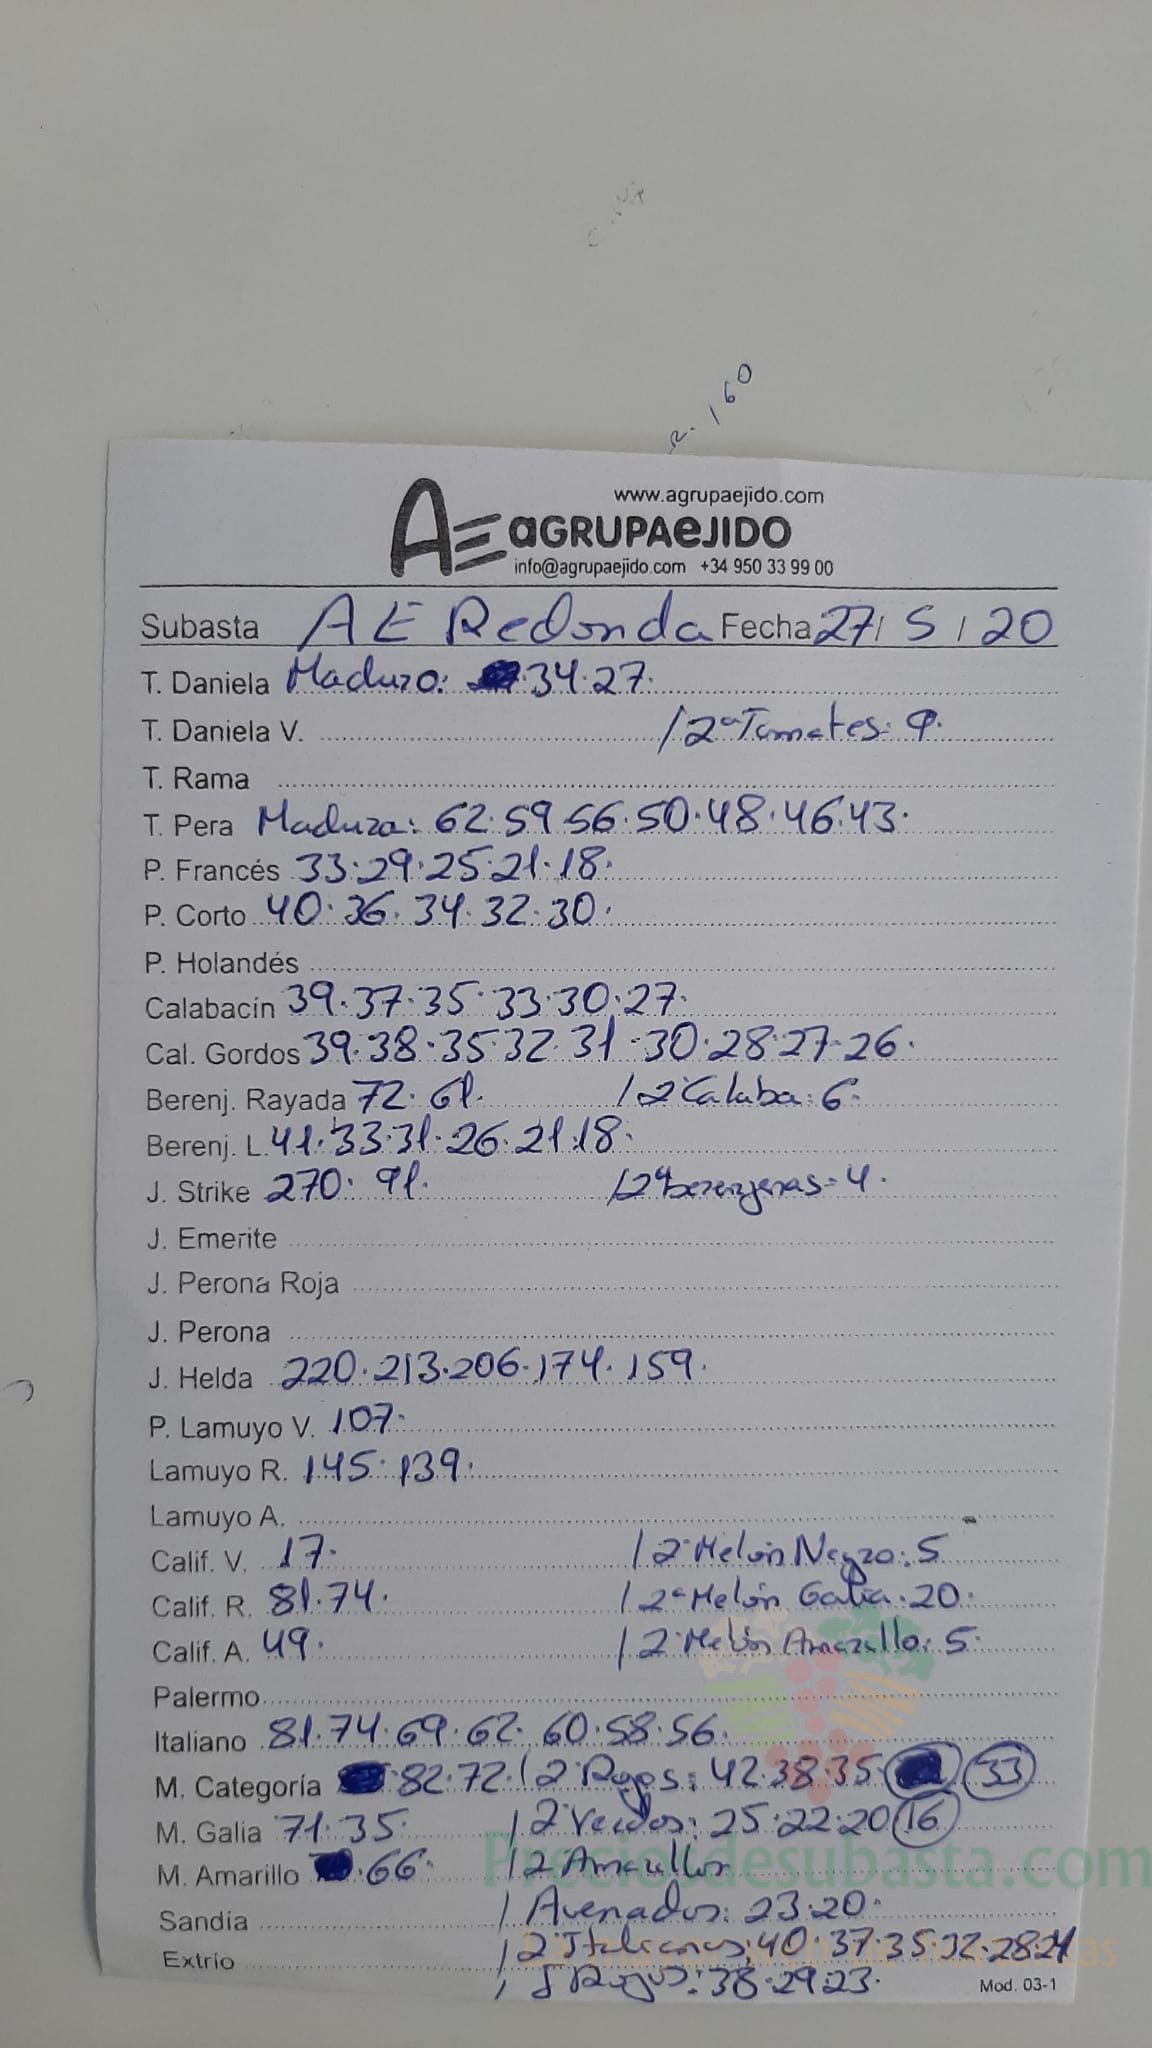 R. 160
www.agrupaejido.com
AE aGRUPAeJIDO
info@agrupaejido.com +34 950 33 99 00
Subasta AE Redonda Fecha 27/5/20
T. Daniela Maduro: 34.27.
T. Daniela V. /2ª Tomates: 9.
T. Rama
T. Pera Madura: 62.59.56.50.48.46.43.
P. Francés 33.29.25.21.18.
P. Corto 40.36.34.32.30.
P. Holandés
Calabacín 39.37.35.33.30.27.
Cal. Gordos 39.38.35.32.31.30.28.27.26.
Berenj. Rayada 72.61. /2ª Calaba: 6.
Berenj. L. 41.33.31.26.21.18.
J. Strike 270.91. /2ª berenjenas: 4.
J. Emerite
J. Perona Roja
J. Perona
J. Helda 220.213.206.174.159.
P. Lamuyo V. 107.
Lamuyo R. 145.139.
Lamuyo A.
Calif. V. 17. /2ª Melón Negro: 5
Calif. R. 81.74. /2ª Melón Galia: 20.
Calif. A. 49. /2ª Melón Amarillo: 5.
Palermo
Italiano 81.74.69.62.60.58.56.
M. Categoría 82.72. /2ª Rojos: 42.38.35. 33
M. Galia 71.35. /2ª Verdes: 25.22.20 16
M. Amarillo 66. /2ª Amarillos
Sandía / Avenados: 23.20.
Extrío /2ª Italianos: 40.37.35.32.28.24
/ Rojos: 38.29.23.
Mod. 03-1
Preciosdesubasta.com